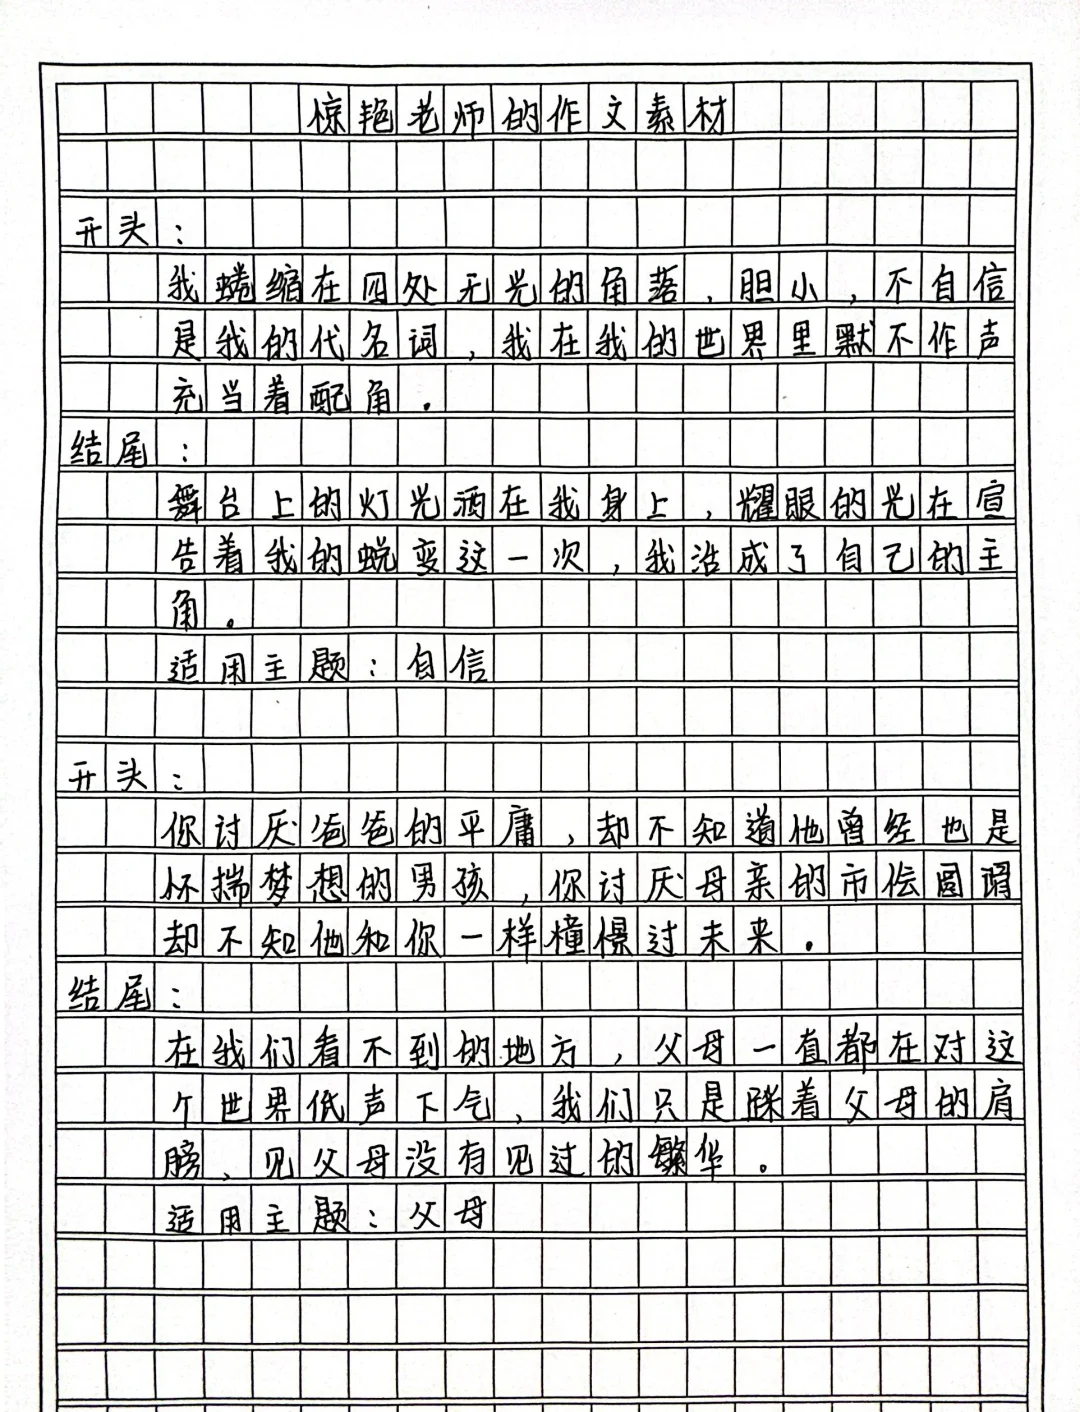 惊艳老师的作文素材
开头：
我蜷缩在四处无光的角落，胆小，不自信
是我的代名词，我在我的世界里默不作声
充当着配角．
结尾：
舞台上的灯光洒在我身上，耀眼的光在宣
告着我的蜕变这一次，我活成了自己的主
角。
适用主题：自信
开头：
你讨厌爸爸的平庸，却不知道他曾经也是
怀揣梦想的男孩，你讨厌母亲的市侩圆滑
却不知他和你一样憧憬过未来．
结尾：
在我们看不到的地方，父母一直都在对这
个世界低声下气，我们只是踩着父母的肩
膀、见父母没有见过的繁华。
适用主题：父母